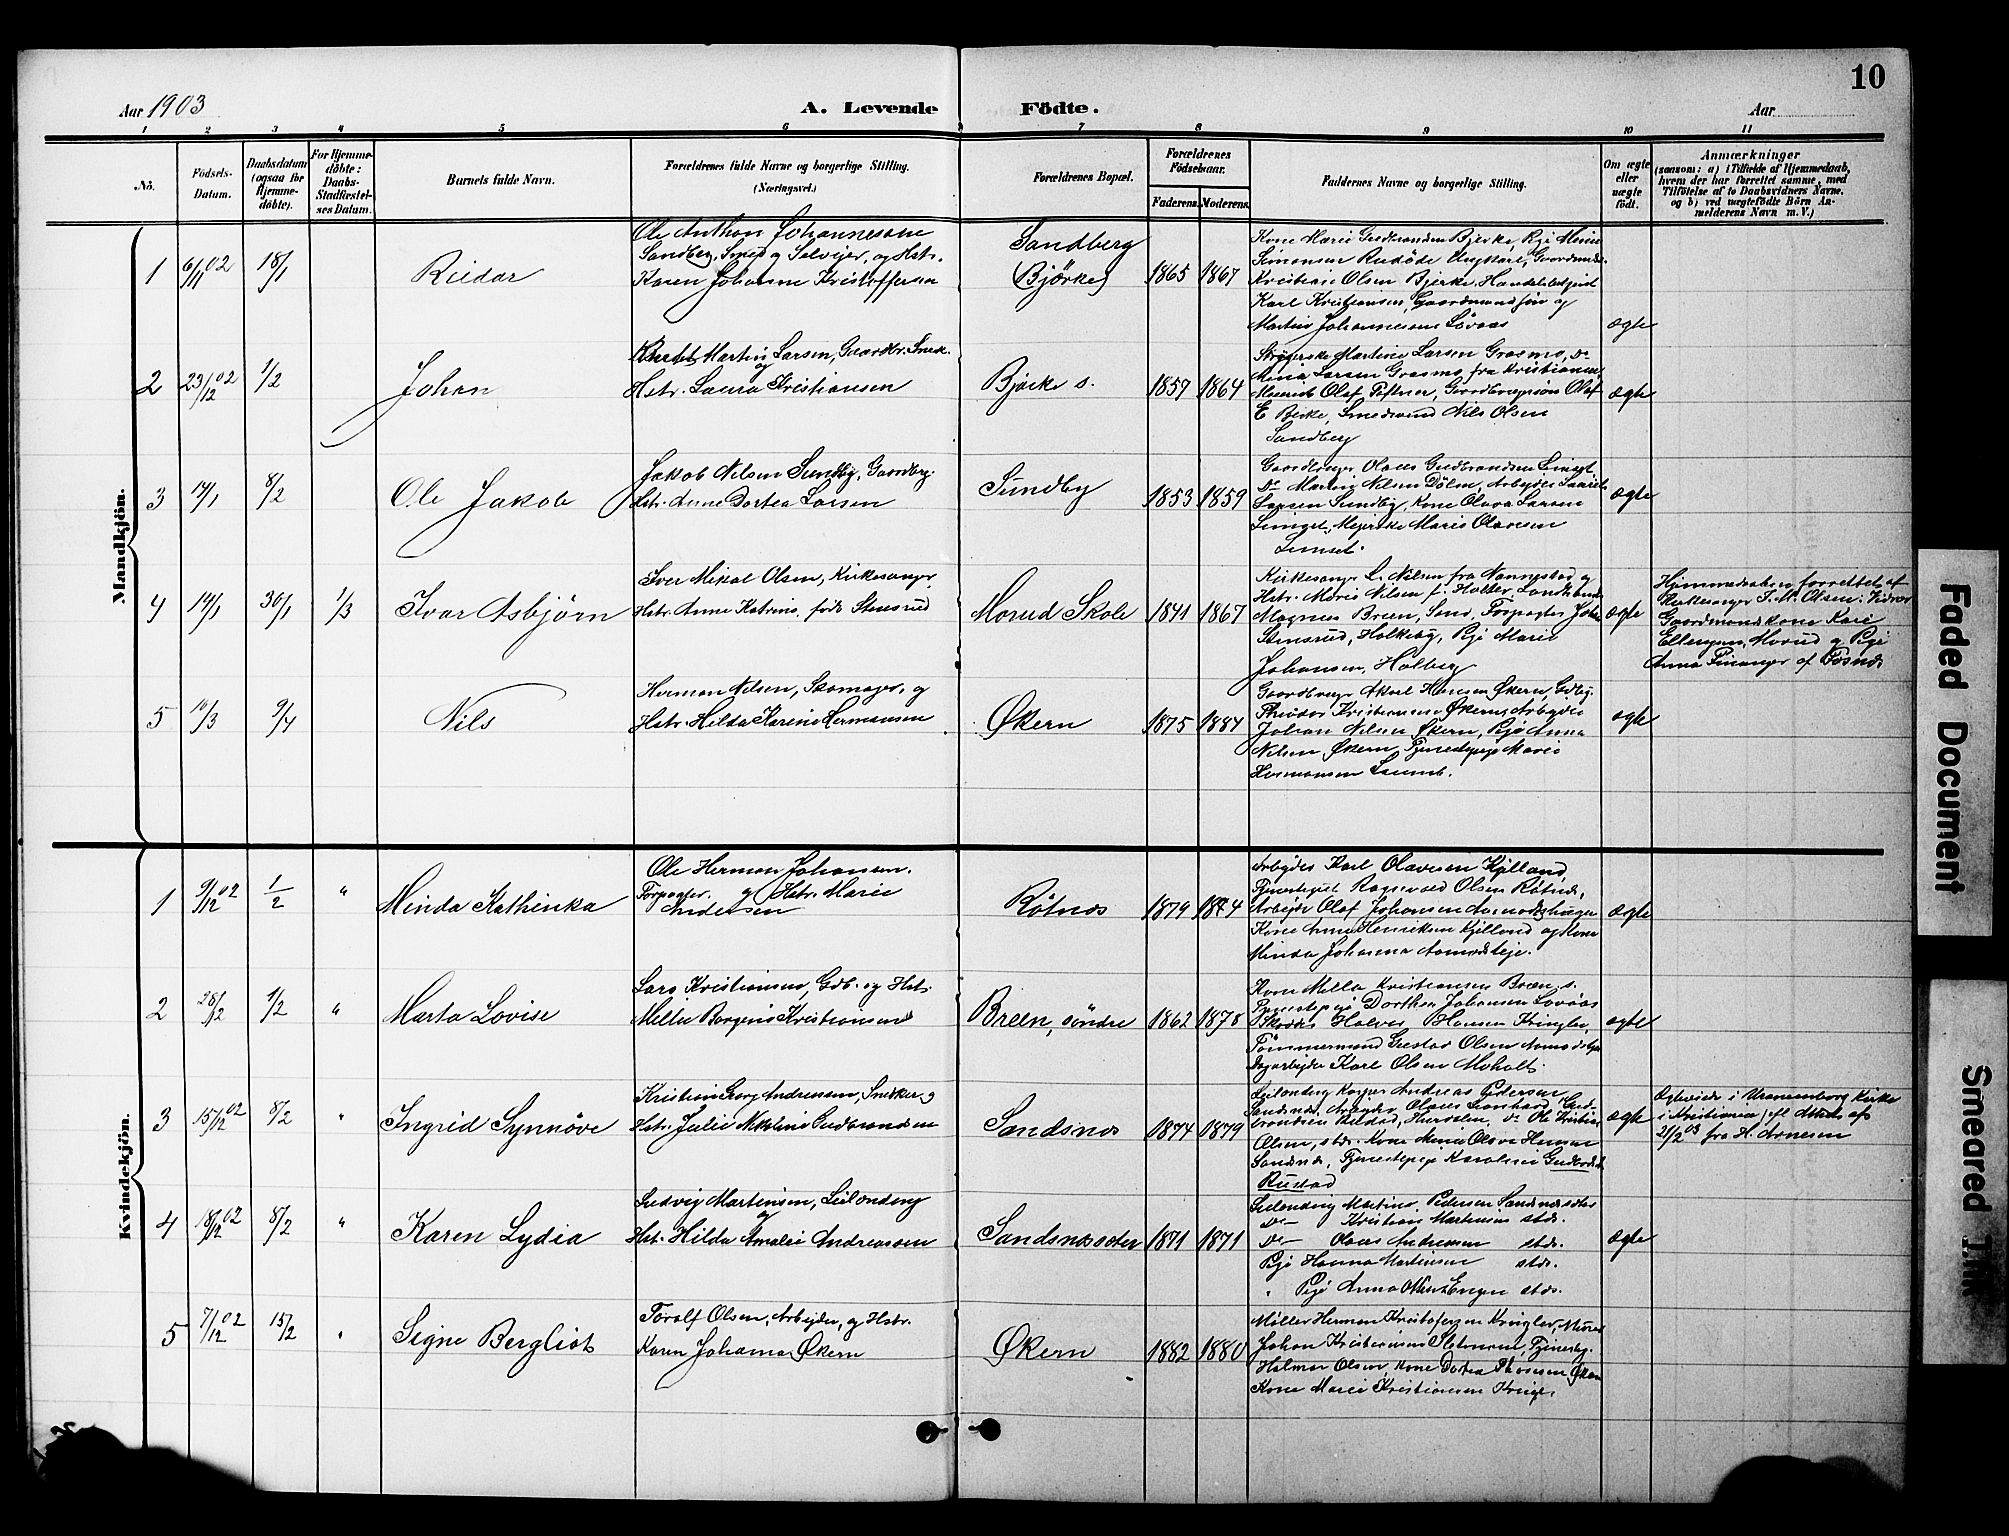 10
Aar 1903
A. Levende Födte.
Aar
1 2 3 4 5 6 7 8 9 10 11
No.
Födsels-Datum.
Daabsdatum (ogsaa for Hjemme-döbte).
For Hjemme-döbte: Daabs-Stadfæstel-ses Datum.
Barnets fulde Navn.
Forældrenes fulde Navne og borgerlige Stilling. (Næringsvei.)
Forældrenes Bopæl.
Forældrenes Födselsaar.
Faderens. Moderens.
Faddernes Navne og borgerlige Stilling.
Om ægte eller uægte födt.
Anmærkninger
(saasom: a) i Tilfælde af Hjemmedaab, hvem der har forrettet samme, med Tilföielse af to Daabsvidners Navne, og b) ved uægtefödte Börn An-melderens Navn m. V.)
Mandkjön.
1 6/11 02 18/1 Reidar
Ole Anthon Johannessen
Sandberg, Smed og Selveier, og Hstr.
Karen Johanne Kristoffersen
Sandberg
(Bjørke)
1865 1867
Kone Marie Gudbrandsen Bjerke, Pige Marie
Simonsen Ungkarl, Gaardmands.
Kristian Olsen Bjerke, Handelsbetjent
Karl Kristiansen, Gaardmandssøn og
Martin Johannessen Løvaas
ægte
2 23/12 02 1/2 Johan
Martin Larsen, Gaardbr. Snek.
og
Hstr. Laura Kristiansen
Bjørke s.
1859 1864
Strygerske Martine Larsen Grasmo, Do
Mina Larsen Grasmo, fra Kristiania,
Olaf Toftner, Gaardbrugersøn Olaf
E. Smedsvend Nils Olsen
Sandberg
ægte
3 14/1 8/2 Ole Jakob
Jakob Nilsen Sundby, Gaardbrg.
Hstr. Anne Dortea Larsen
Sundby
1853 1859
Gaardbruger Olaus Gudbrandsen Limset
Do Martin Nilsen Dølen, Arbeider
Larsen Sundby, Kone Olava Larsen
Limset, Meierske Marie Olavesen
Limset.
ægte
4 14/1 30/1 1/3 Ivar Asbjørn
Iver Mikal Olsen, Kirkesanger,
Hstr. Anne Katrine, født Stensrud
Morud Skole
1841 1867
Kirkesanger L. Nilsen fra Nannestad og
Hstr. Marie Nilsen f. Holter,
Magnus Breen, Forpagter Johan
Stensrud, Holkeby, Pige Marie
Johansen, Holberg
ægte
Hjemmedaaben forrettet af
Kirkesanger I. M. Olsen. Vidner
Gaardmandskone Kari
Ellingsen, Morud og Pige
Anna Finanger af Fosnæs
5 10/3 9/4 Nils
Herman Nilsen, Skomager, og
Hstr. Hilda Karine Hermansen
Økern
1875 1884
Gaardbruger Aksel Hansen Økern, Gdbg.
Theodor Kristiansen Økern, Arbeider
Johan Nilsen Økern, Pige Anna
Nilsen, Økern, Tjenestepige Marie
Hermansen
ægte
Kvindekjön.
1 9/12 02 1/2 " Minda Kathinka
Ole Herman Johansen.
Forpagter. og Hstr. Marie
Andersen
Røtnes
1879
Arbeider Karl Olavesen Kjilland,
Ragnvald Olsen Røtnes,
Arbeider Olaf Johansen
Kone Anna Henriksen Kjilland og Kone
Minda Johanna
ægte
2 28/12 1/2 " Marta Lovise
Lars Kristiansen, Gdb. og Hstr.
Millie Borgine Kristiansen
Breen, søndre
1862 1878
Kone Mella Kristiansen Bræn s.
Tjenestepige Dorthea Johansen Lovaas
Halvor Hansen Kringler,
Tømmermand Gustav Olsen
Dagarbeider Karl Olsen Moholt.
ægte
3 15/12 02 8/2 " Ingrid Synnøve
Kristian Georg Andreassen, Snekker og
Hstr. Julie Nikoline Gudbrandsen
Sandsnes
1874 1879
Leilænding Kasper Andreas Pedersen
Sandsnes, Arbeider Olaus Leonhard Gud-
brandsen Hurdalen, Do Ole Kristian
Olsen, stds. Kone Mina Olsen
Sandsnes, Tjenestepige Karoline Gudbrands.
Rustad
ægte
Ægteviede i Uranienborg Kirke
i Kristiania jfl. Attest af
21/2 03 fra H. Arnesen
4 18/12 02 8/2 " Karen Lydia
Ludvig Martinsen, Leilænding
og
Hstr. Hilda Amalie Andreassen
Sandsnesseter
1871 1871
Leilænding Martinus Pedersen Sandsnesseter
Do Kristian Martinsen stds.
Do Olaus Andreassen stds.
Pige Hanna Martinsen stds.
" Pige Anna Engen stds.
ægte
5 7/12 02 15/2 " Signe Bergliot
Toralf Olsen, Arbeider, og Hstr.
Karen Johanna Økern
Økern
1882 1880
Møller Herman Kristofersen Kringler, Murer
Johan Kristiansen Tjenestg.
Halmar Olsen, Kone Dortea Økern
Kone Marie Kristiansen
Faded Document
Smeared Ink